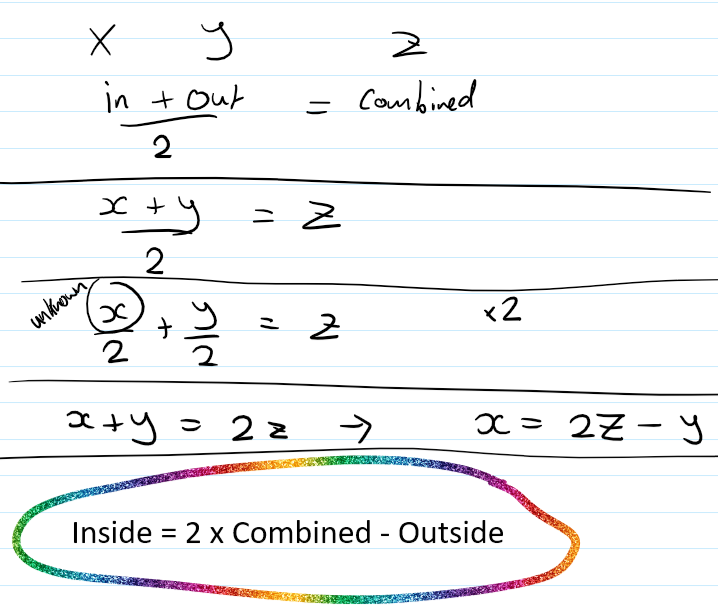 x y z
in + out = Combined
2
x + y = z
2
unknown x + y = z x2
2 2
x + y = 2z → x = 2z - y
Inside = 2 x Combined - Outside